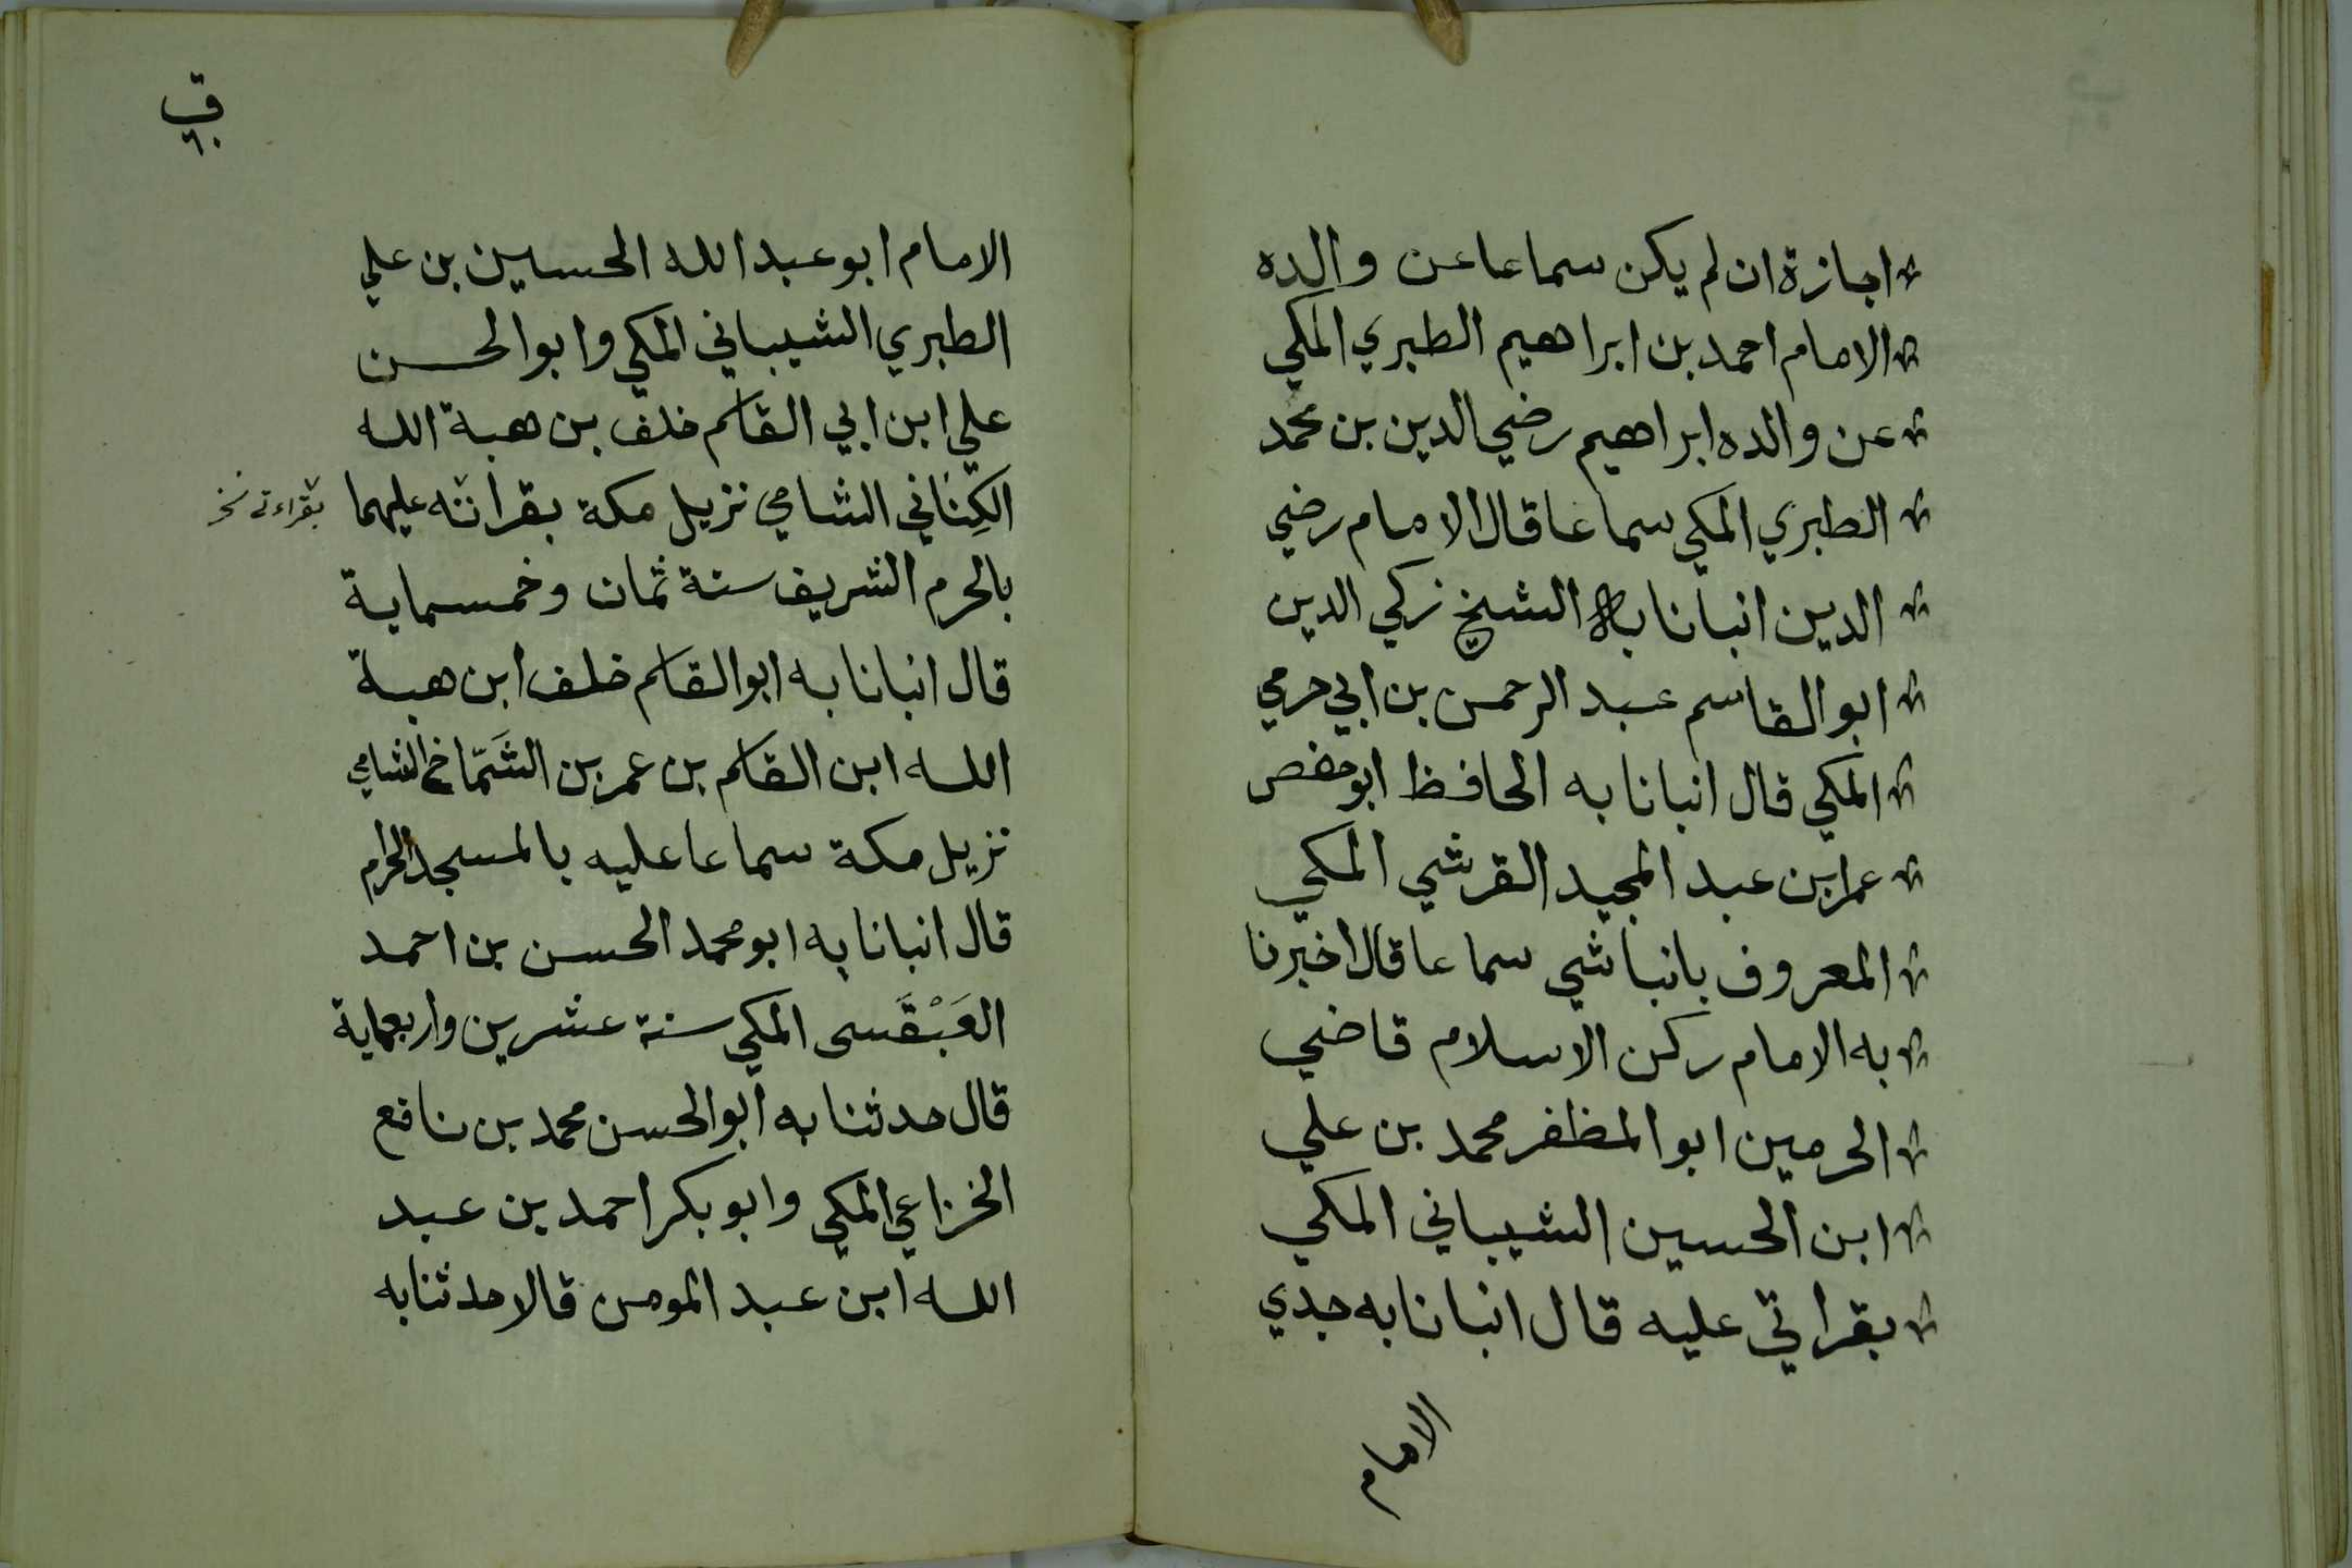 اجازة ان لم يكن سماعا عن والده
الامام احمد بن ابراهيم الطبري المكي
عن والده ابراهيم رضي الدين بن محمد
الطبري المكي سماعا قال الامام رضي
الدين انبانا به الشيخ زكي الدين
ابو القاسم عبد الرحمن بن ابي حرمي
المكي قال انبانا به الحافظ ابو حفص
عمر ابن عبد المجيد القرشي المكي
المعروف بانباشي سماعا قال اخبرنا
به الامام ركن الاسلام قاضي
الحرمين ابو المظفر محمد بن علي
ابن الحسين الشيباني المكي
بقراتي عليه قال انبانا به جدي
الامام
الامام ابو عبد الله الحسين بن علي
الطبري الشيباني المكي وابو الحسن
علي ابن ابي القاسم خلف بن هبة الله
الكِناني الشامي نزيل مكة بقراته عليهما
بقراءتي نخ
بالحرم الشريف سنة ثمان وخمسماية
قال انبانا به ابو القاسم خلف ابن هبة
الله ابن القاسم بن عمر بن الشَمّاخ الشامي
نزيل مكة سماعا عليه بالمسجد الحرام
قال انبانا به ابو محمد الحسن بن احمد
العَبْقَسى المكي سنة عشرين واربعماية
قال حدثنا به ابو الحسن محمد بن نافع
الخزاعي المكي وابو بكر احمد بن عبد
الله ابن عبد المومن قالا حدثنا به